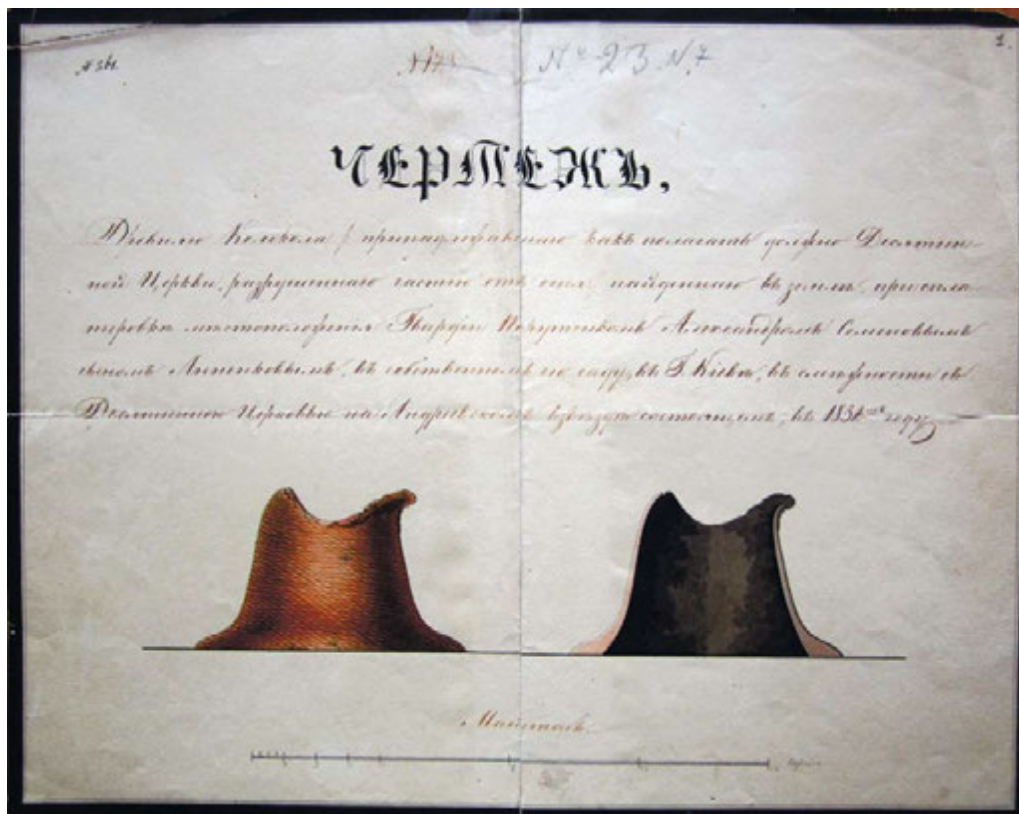 № 361.
№ 23 N. 7
1.
ЧЕРТЕЖЪ,
Древняго Колокола / принадлежавшаго какъ полагать должно Десятин-
ной Церкви, разрушеннаго частію отъ огня: найденнаго въ землѣ, при спла-
нировкѣ мѣстоположенія Гвардіи Поручикомъ Александромъ Семеновымъ
сыномъ Анненковымъ, въ собственномъ его саду, въ Г. Кіевѣ, въ смѣжности съ
Десятинною Церковью на Андреевскомъ взвозѣ состоящемъ, въ году
Маштабъ.